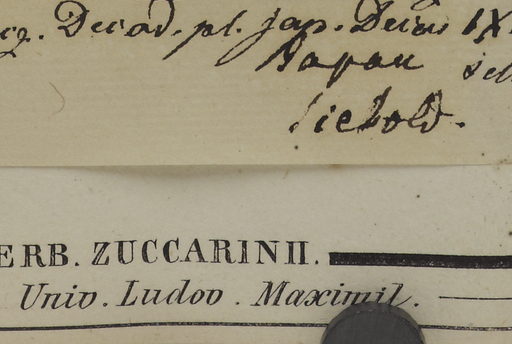 Decad. pl. jap. Decas IX
Japan
Siebold.
ERB. ZUCCARINII.
Univ. Ludov. Maximil.